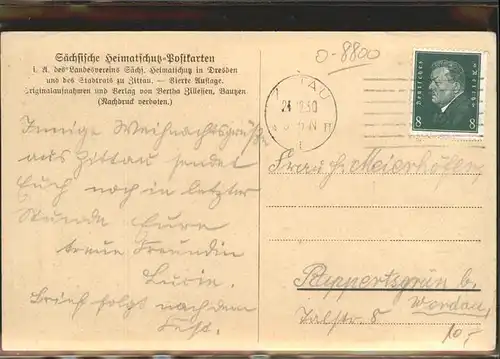 Sächsische Heimatschutz-Postkarten
i. A. des Landesvereins Sächs. Heimatschutz in Dresden
und des Stadtrats zu Zittau. — Vierte Auflage.
Originalaufnahmen und Verlag von Bertha Zillessen, Bautzen
(Nachdruck verboten.)
O-8800
ZITTAU
Deutsches Reich
8 8
Innige Weihnachtsgrüße
aus Zittau sendet
Euch noch in letzter
Stunde Eure
treue Freundin
Lucie.
Brief folgt nach dem
Fest.
Frau H. Meierhöfer,
Ruppertsgrün b.
Werdau,
Talstr. 8
10,-